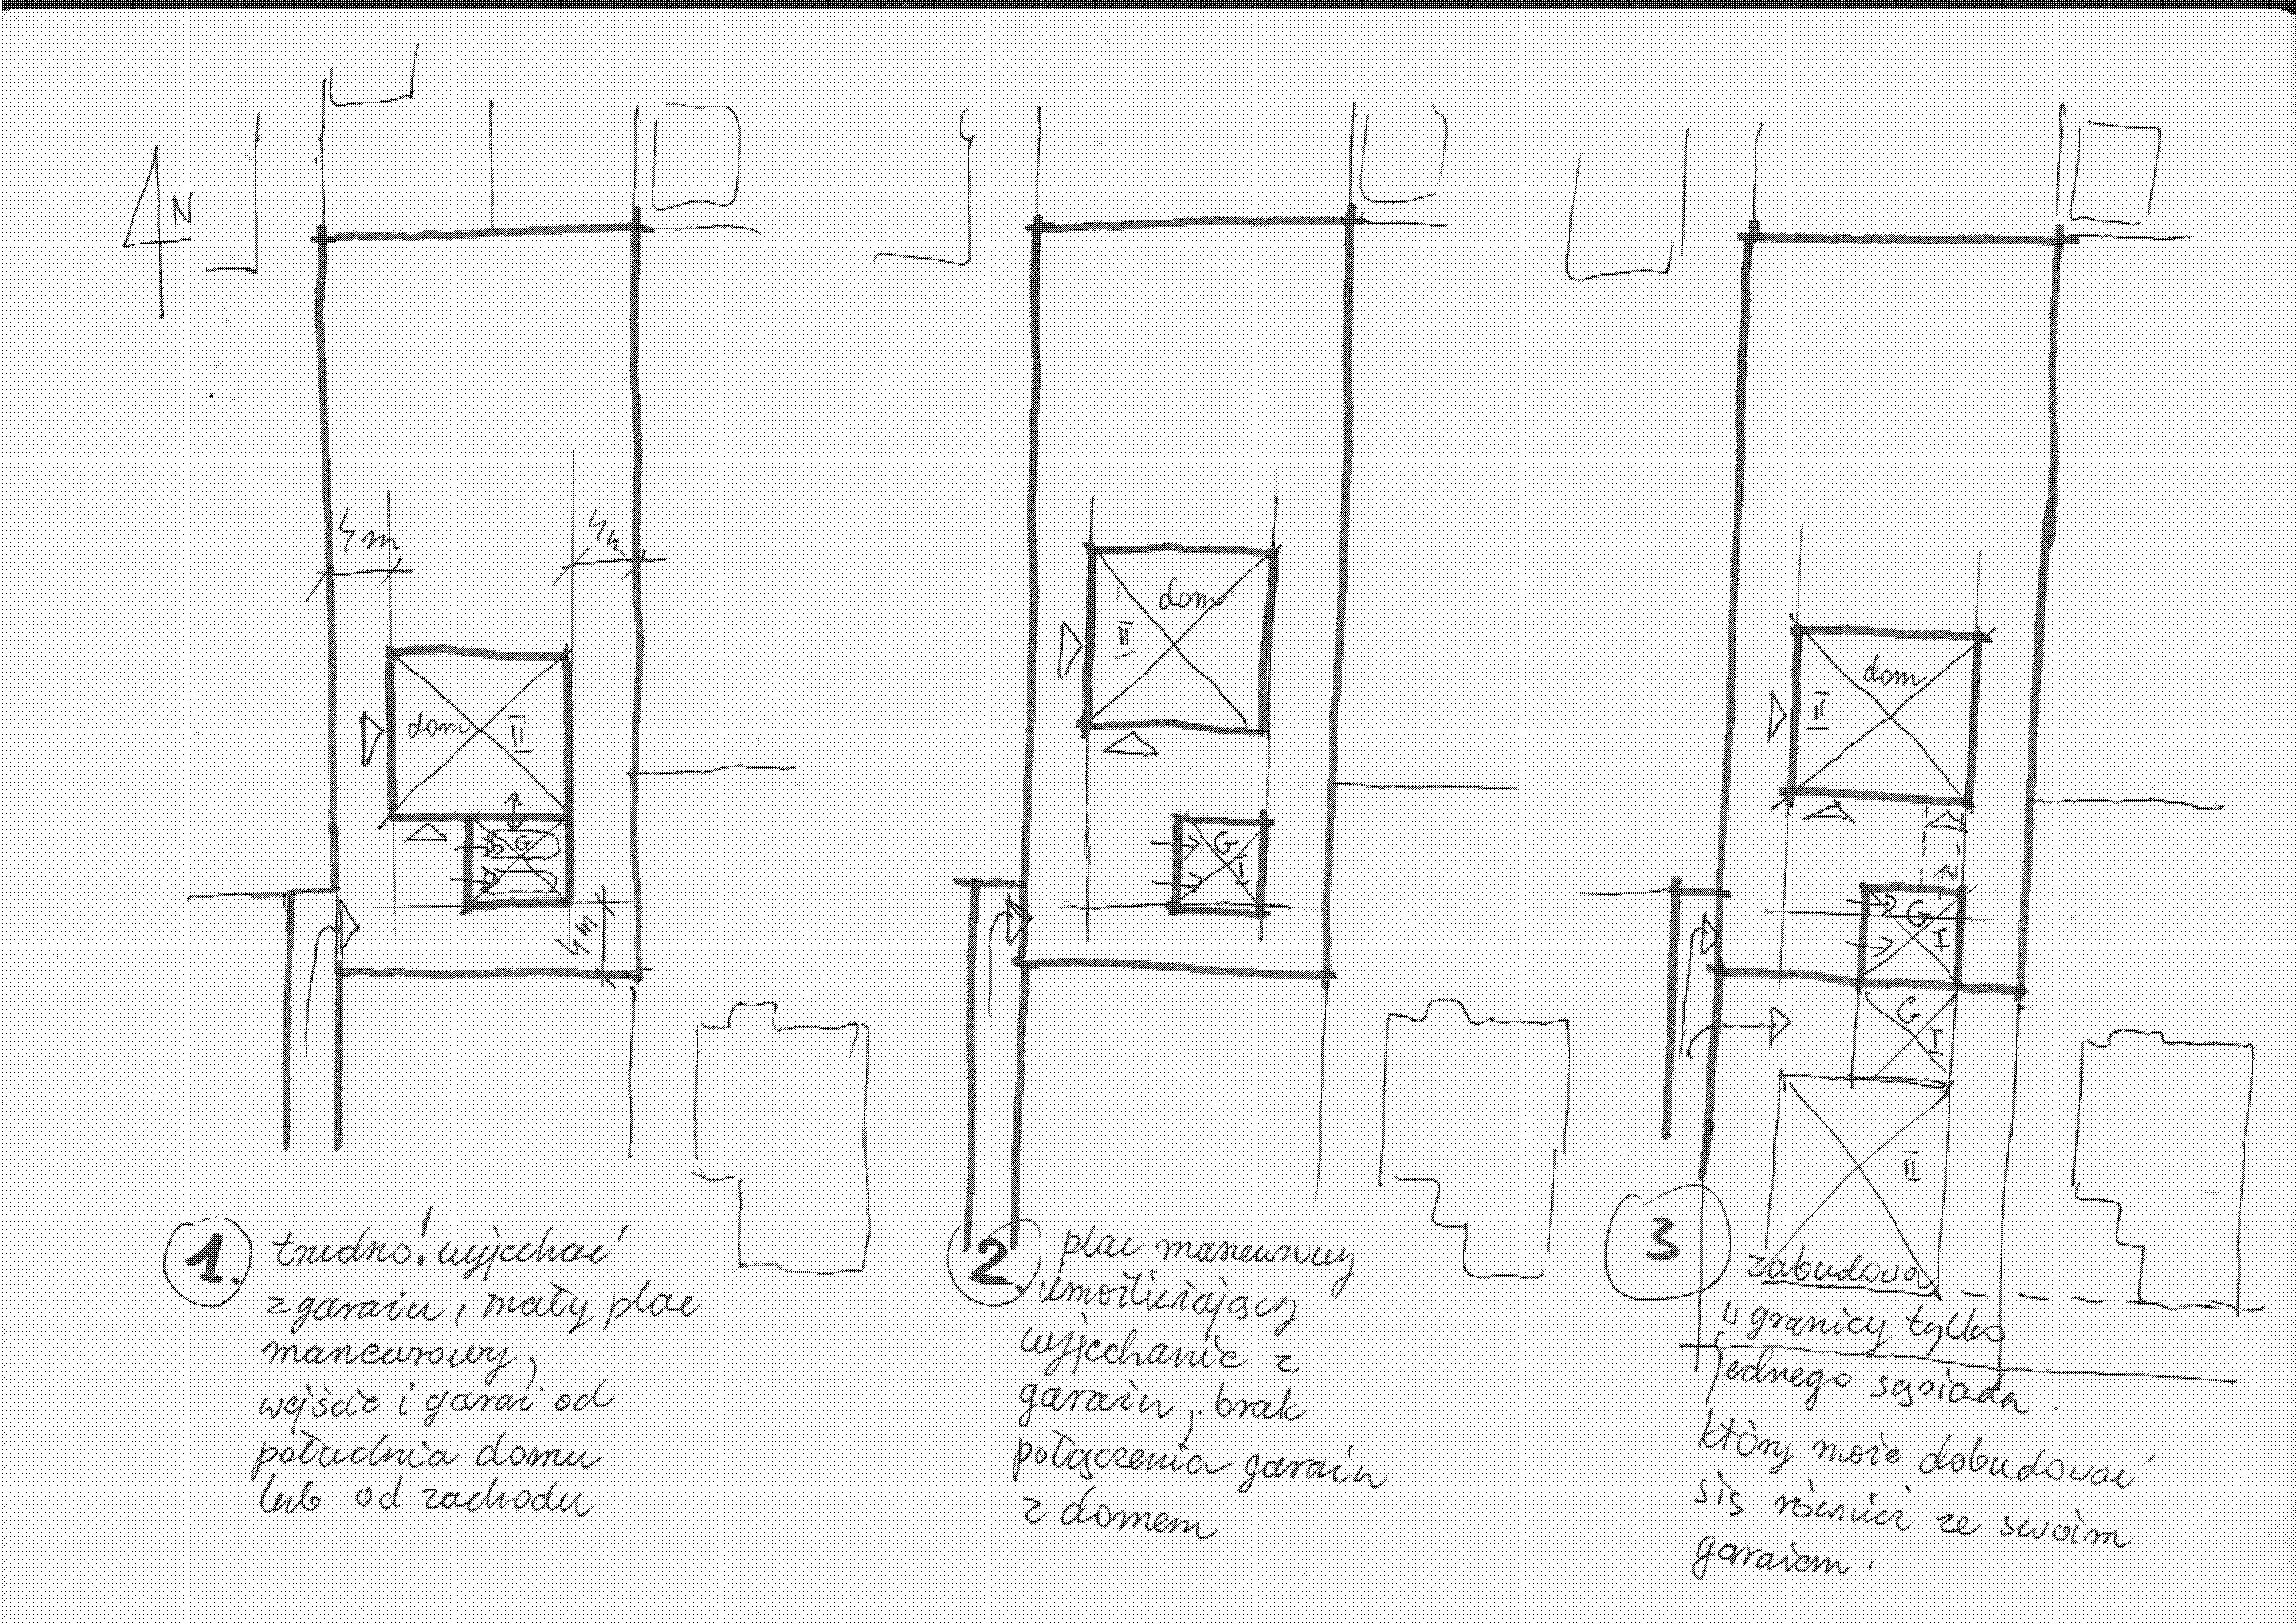 N
4m
4m
dom II
G
4m
dom
II
G
I
dom
II
G
I
G
I
II
1. trudno! wyjechać
z garażu, mały plac
manewrowy,
wejście i garaż od
południa domu
lub od zachodu
2 plac manewrowy
umożliwiający
wyjechanie z
garażu, brak
połączenia garażu
z domem
3 zabudowa
w granicy tylko
jednego sąsiada.
który może dobudować
się również ze swoim
garażem.